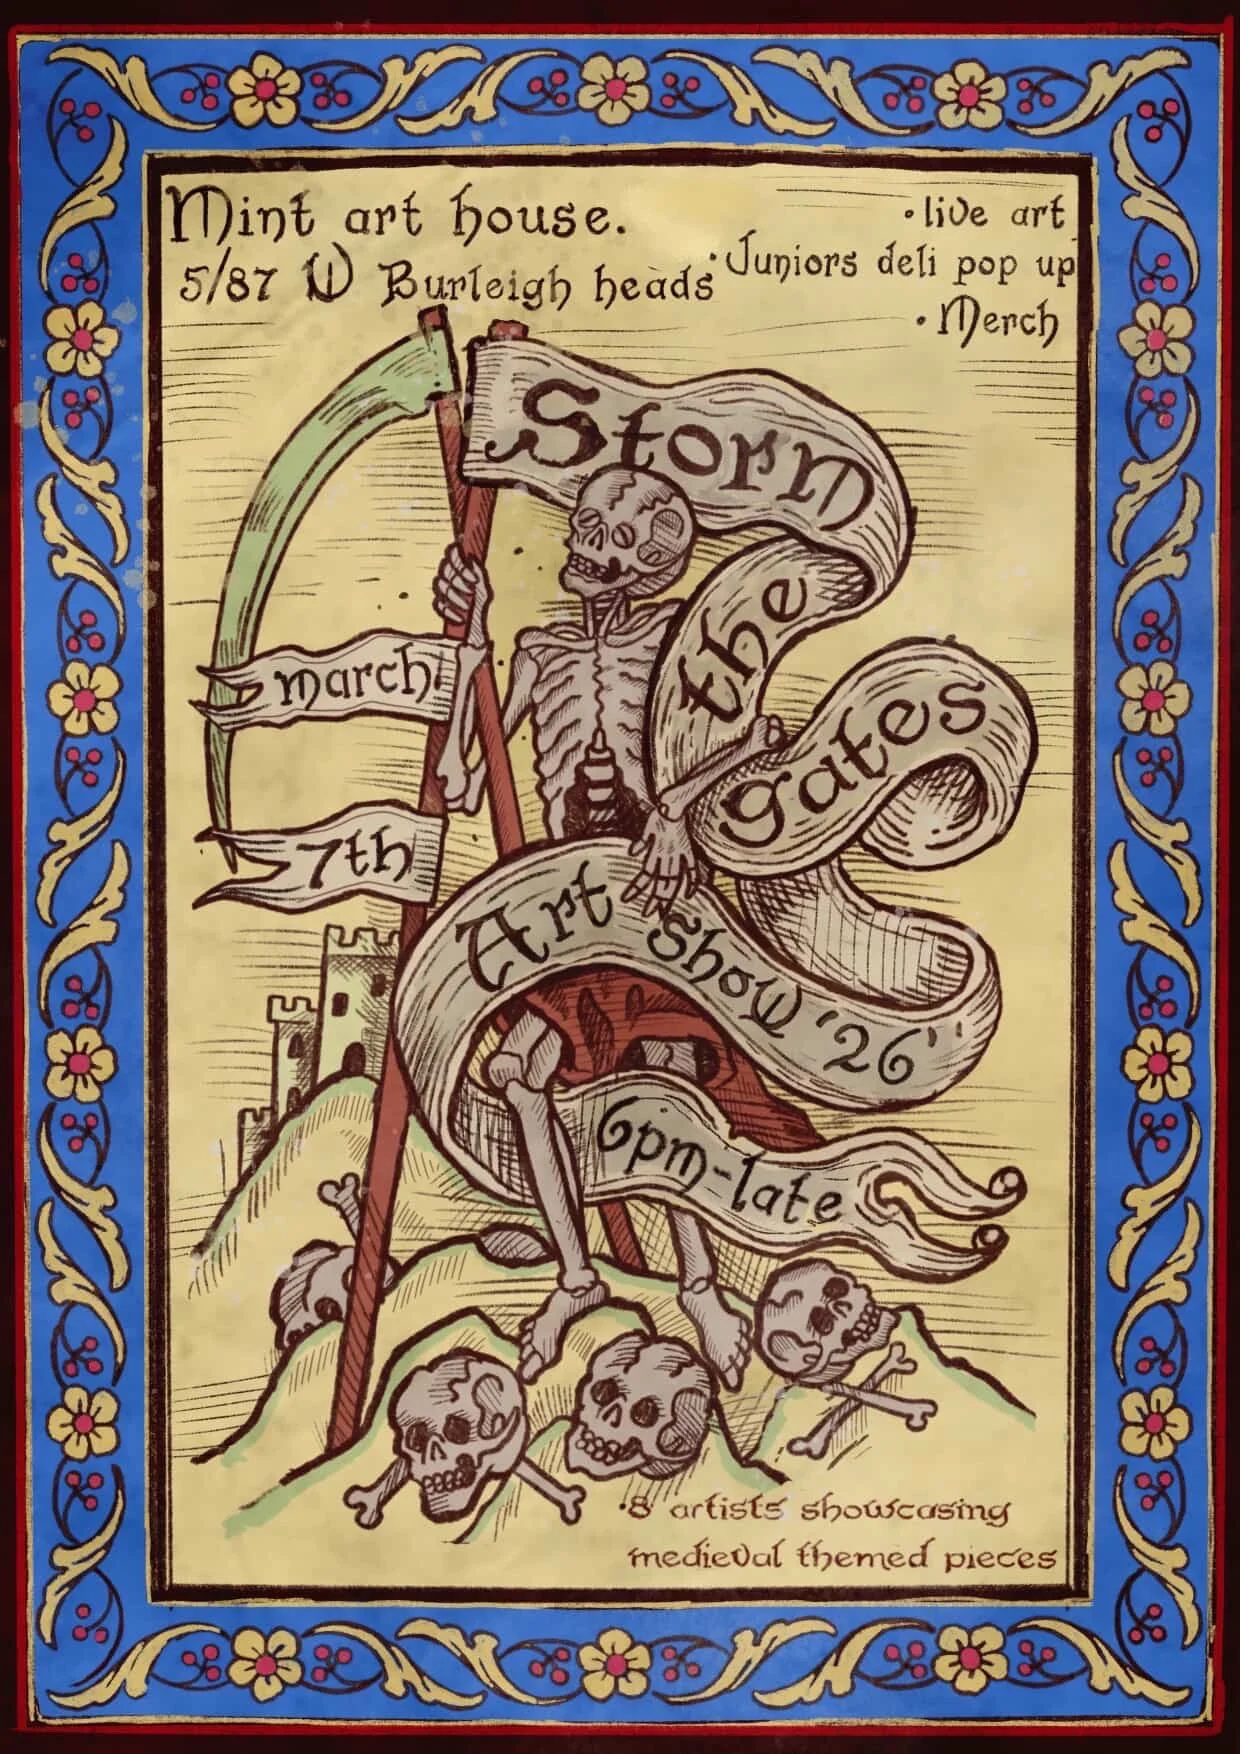 Mint art house.
5/87 W Burleigh heads
• live art
• Juniors deli pop up
• Merch
Storm
the
gates
march
7th
Art show '26'
6pm-late
• 8 artists showcasing
medieval themed pieces